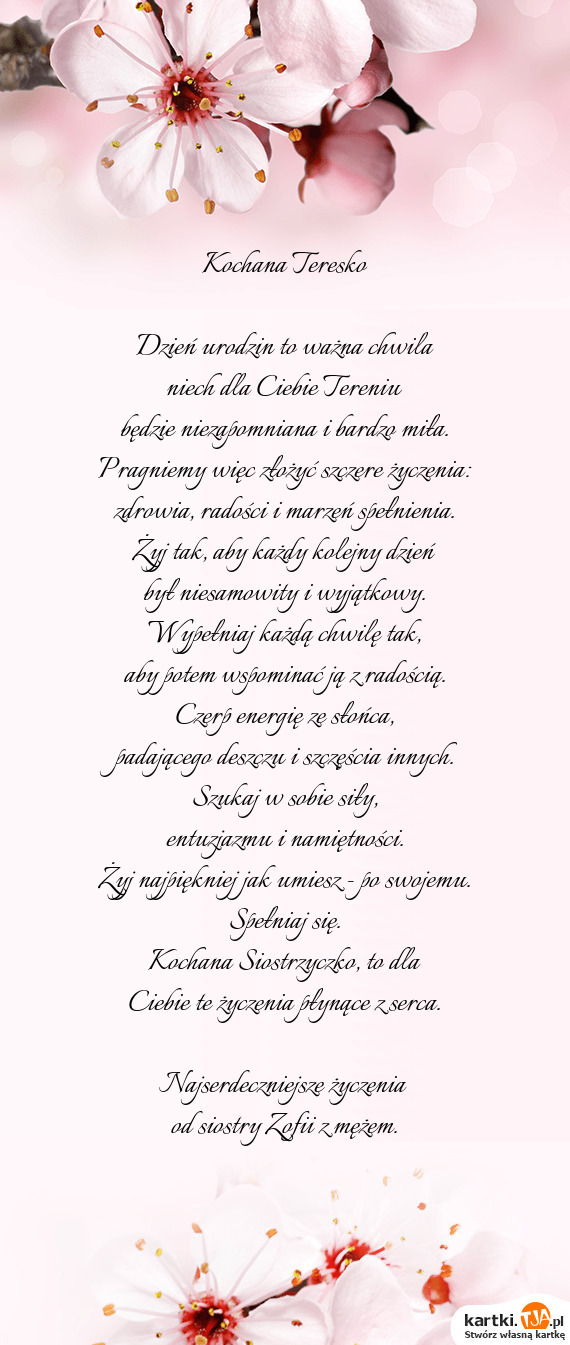 Kochana Teresko
Dzień urodzin to ważna chwila
niech dla Ciebie Tereniu
będzie niezapomniana i bardzo miła.
Pragniemy więc złożyć szczere życzenia:
zdrowia, radości i marzeń spełnienia.
Żyj tak, aby każdy kolejny dzień
był niesamowity i wyjątkowy.
Wypełniaj każdą chwilę tak,
aby potem wspominać ją z radością.
Czerp energię ze słońca,
padającego deszczu i szczęścia innych.
Szukaj w sobie siły,
entuzjazmu i namiętności.
Żyj najpiękniej jak umiesz - po swojemu.
Spełniaj się.
Kochana Siostrzyczko, to dla
Ciebie te życzenia płynące z serca.
Najserdeczniejsze życzenia
od siostry Zofii z mężem.
kartki.TJA.pl
Stwórz własną kartkę